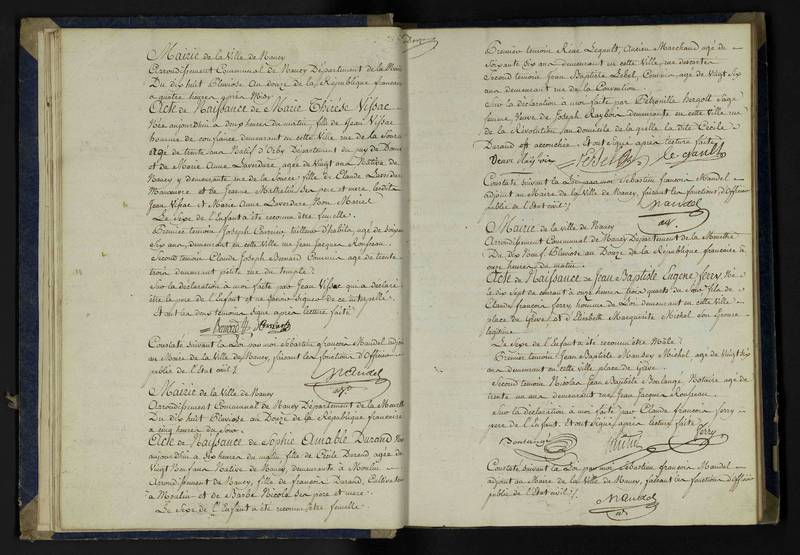 Mairie de la Ville de Nancy
Arrondissement Communal de Nancy Département de la Meurthe
Du dix huit Pluviose an douze de la République française
à quatre heures après Midi
Acte de Naissance de Marie Thérèse Vissac
Née aujourd'hui à douze heures du matin, fille de Jean Vissac
homme de confiance demeurant en cette Ville rue de la Source
âgé de trente ans Natif d'Orby département du puy de Dome
et de Marie Anne Laverdure, agée de Vingt ans Native de
Nancy y demeurante rue de la Source fille de Claude Laverdure
Manoeuvre et de Jeanne Mathelin ses pere et mere, lesdits
Jean Vissac et Marie Anne Laverdure Non Mariés
Le Sexe de l'Enfant a été reconnu être femelle.
Premier temoin Joseph tailleur d'habits, agé de Soixante
Six ans, demeurant en cette ville rue Jean Jacques Rousseau.
Second temoin Claude Joseph Bernard Commis agé de trente
trois demeurant petite rue du temple
Sur la déclaration à moi faite par Jean Vissac qui a declaré
être le pere de l'Enfant et ne savoir signer de ce interpellé.
Et ont les deux témoins Signé après lecture faite
Bernard
Constaté suivant la Loi par moi Sébastien françois Mandel adjoint
au Maire de la Ville de Nancy, faisant les fonctions d'Officier
public de l'Etat civil ./.
Mandel
adj.
Mairie de la Ville de Nancy
Arrondissement Communal de Nancy Département de la Meurthe
Du dix huit Pluviose an Douze de la République francaise
à cinq heures du Soir.
Acte de Naissance de Sophie Aimable Durand Née
aujourd'hui à dix heures du matin, fille de Cécile Durand agée de
Vingt Neuf ans Native de Nancy, demeurante à Moulin
Arrondissement de Nancy, fille de françois Durand, Cultivateur
à Moulin et de Barbe Nicole ses pere et mere.
Le Sexe de l'Enfant a été reconnu être femelle.
Premier témoin René Legault, ancien Marchand agé de
Soixante dix ans demeurant en cette Ville rue descartes
Second temoin Jean Baptiste Lebel, Commis, age de Vingt Six
ans demeurant rue de la Convention.
Sur la déclaration à moi faite par Pétronille Hergott Sage
femme, Veuve de Joseph Raybois demeurante en cette Ville rue
de la Révolution au domicile de la quelle la dite Cécile
Durand est accouchée. Et ont signé après lecture faite
Veuve Raybois Lebel Le gault
Constaté suivant la Loi par moi Sébastien françois Mandel
adjoint au Maire de la Ville de Nancy, faisant les fonctions d'Officier
public de l'Etat civil ./.
Mandel
adj.
Mairie de la Ville de Nancy
Arrondissement Communal de Nancy Département de la Meurthe
Du dix Neuf Pluviose an Douze de la République francaise à
onze heures du matin.
Acte de Naissance de Jean Baptiste Eugène ferry Né
le dix Sept de courant à onze heures trois quarts du Soir fils de
Claude françois ferry, homme de Loi demeurant en cette Ville
place de Grève et d'Elisabeth Marguerite Michel Son Epouse
legitime
Le Sexe de l'Enfant a été reconnu être Mâle.
Premier temoin Jean Baptiste Mansuy Michel agé de Vingt Six
ans demeurant en cette Ville place de Grève.
Second temoin Nicolas Jean Baptiste Boulangé Notaire, agé de
trente un ans demeurant rue Jean Jacques Rousseau.
Sur la déclaration à moi faite par Claude françois ferry
pere de l'Enfant. Et ont Signé, après lecture faite
Boulangé Michel ferry
Constaté suivant la Loi par moi Sébastien françois Mandel
adjoint au Maire de la Ville de Nancy, faisant les fonctions d'Officier
public de l'Etat civil ./.
Mandel
adj.